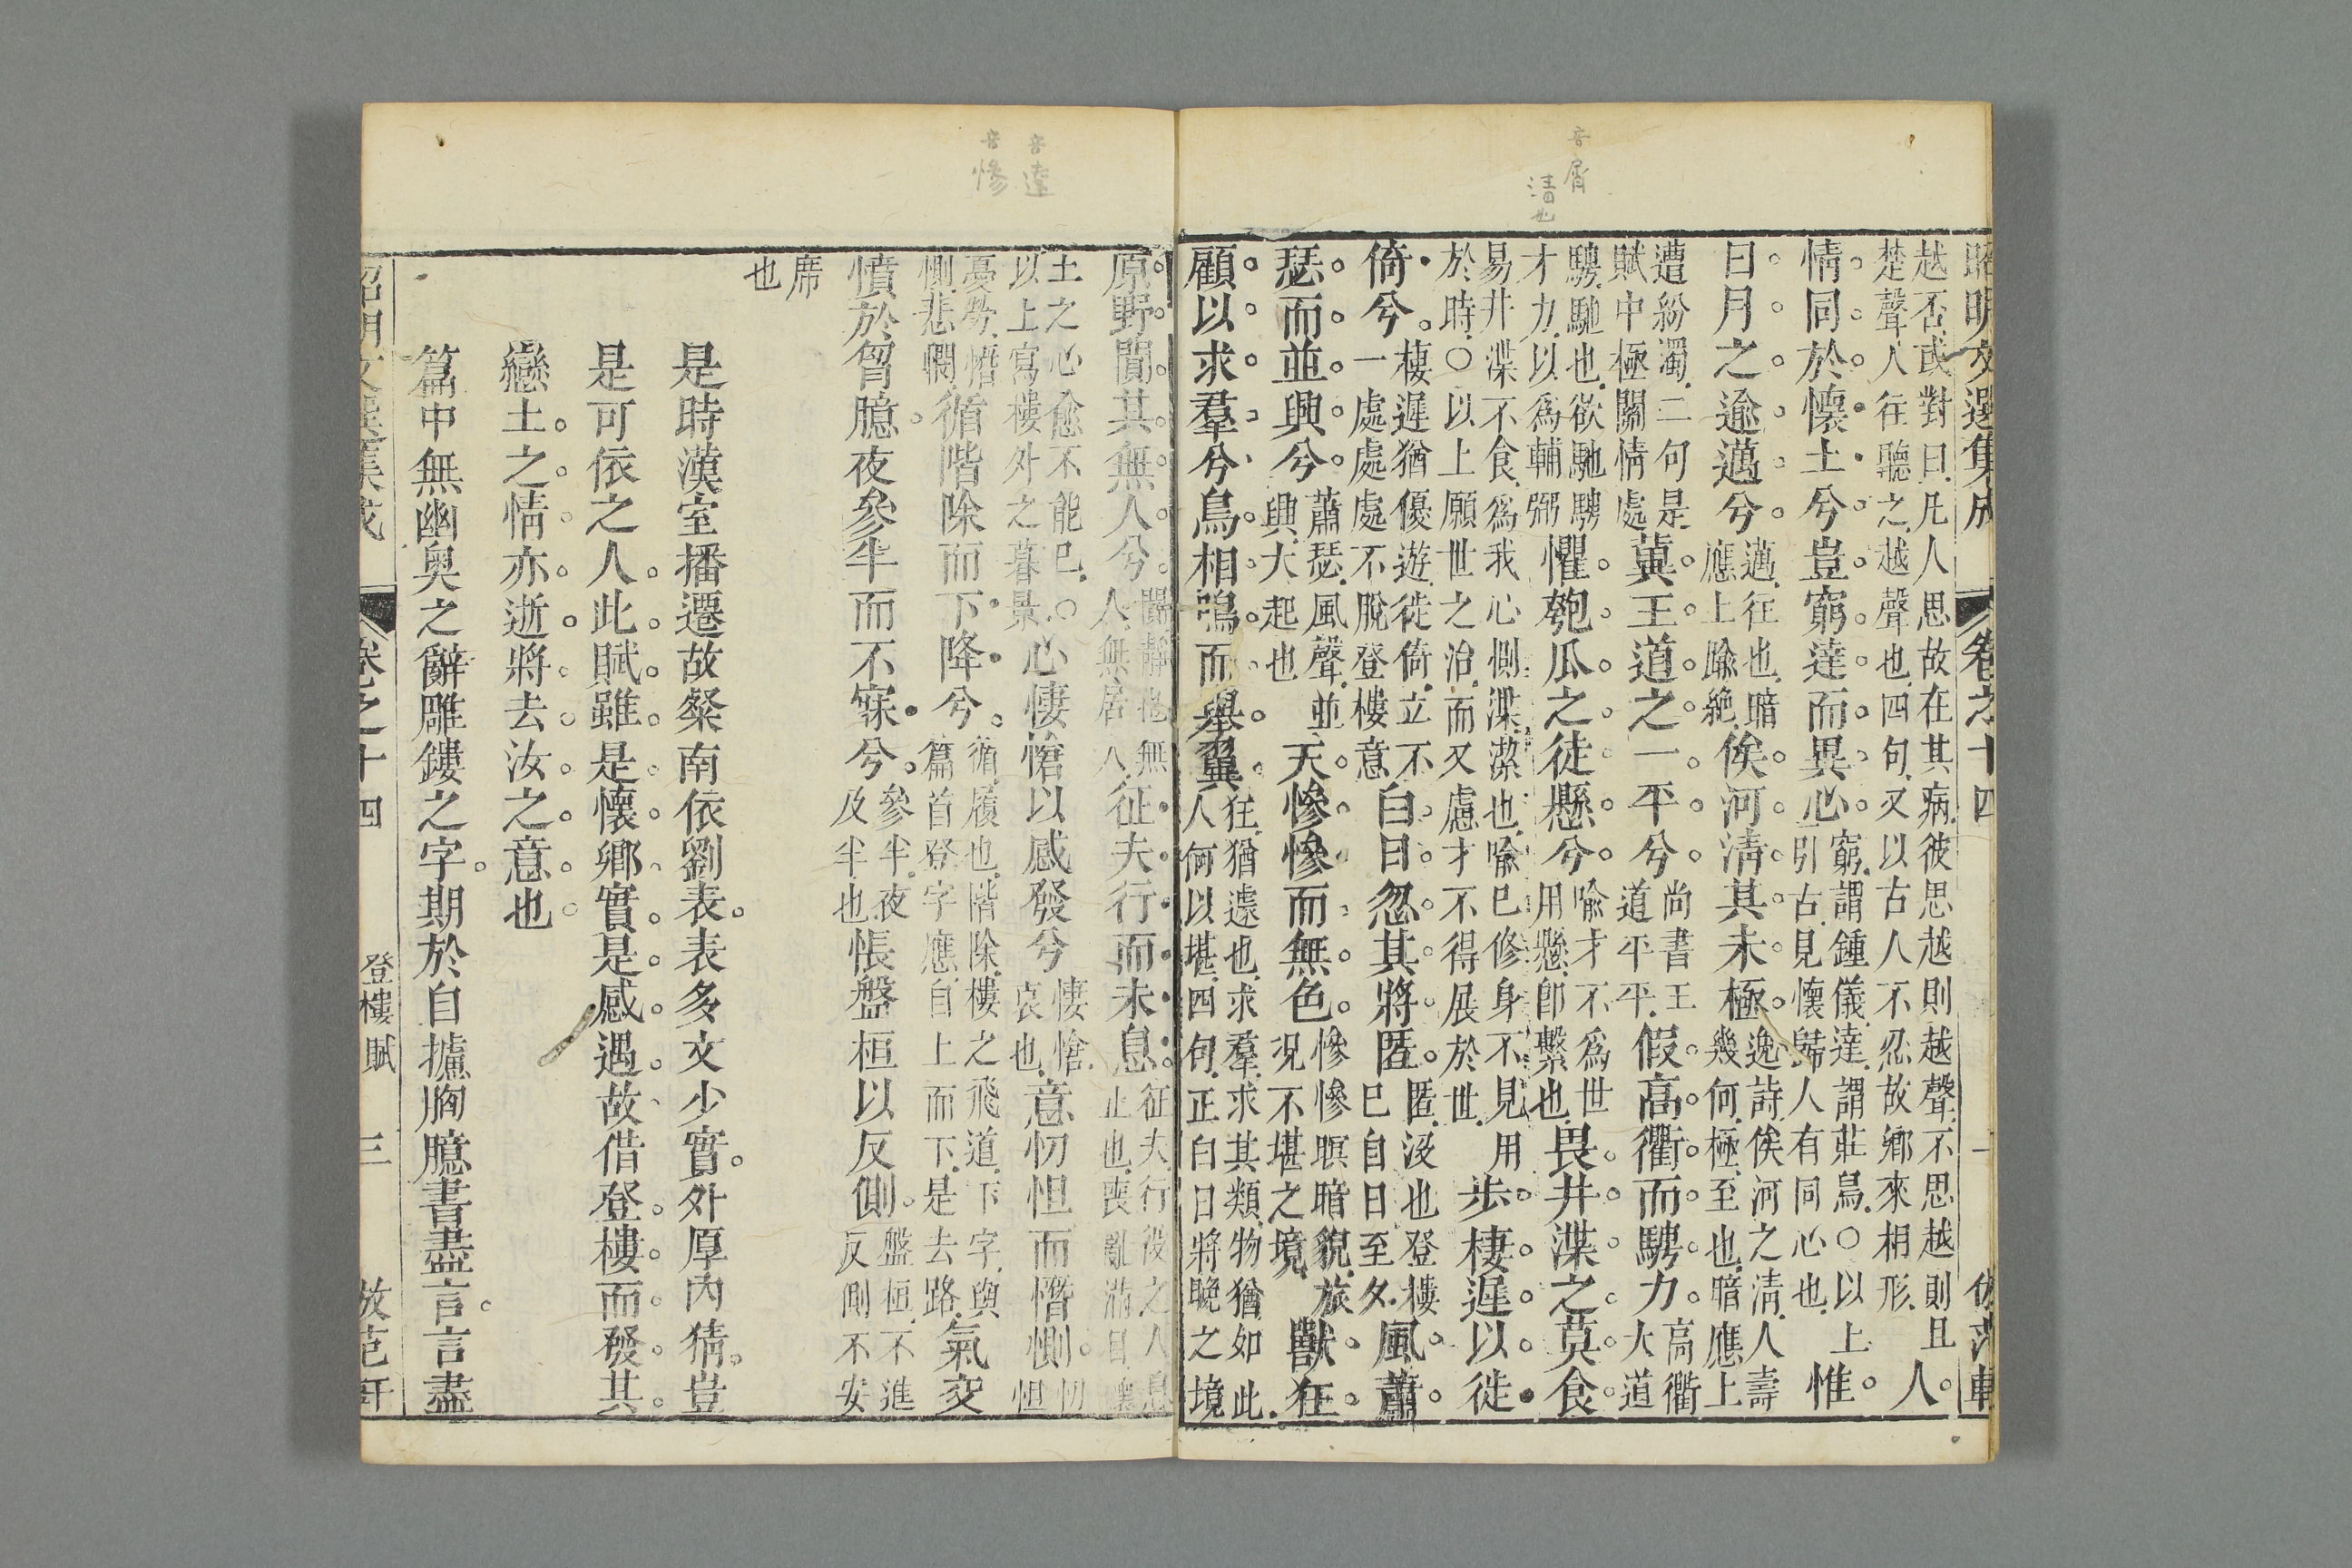 音屑
清也
昭明文選集成 卷之十四
越否或對曰凡人思故在其病彼思越則越聲不思越則且
楚聲人往聽之越聲也四句又以古人不忍故鄉來相形
人
情同於懷土兮豈窮達而異心
窮謂鍾儀達謂莊舄○以上
引古見懷歸人有同心也
惟
日月之逾邁兮
邁往也暗
應上踰絶
俟河清其未極
逸詩俟河之清人壽
幾何極至也暗應上
遭紛濁二句是
賦中極關情處
冀王道之一平兮
尚書王
道平平
假高衢而騁力
高衢
大道
騁馳也欲馳騁
才力以為輔弼
懼匏瓜之徒懸兮
喻才不為世
用懸即繫也
畏井渫之莫食
易井渫不食為我心惻渫潔也喻已修身不見用
於時○以上願世之治而又慮才不得展於世
步棲遲以徙
倚兮
棲遲猶優遊徙倚立不
一處處處不脫登樓意
白日忽其將匿
匿没也登樓
已自日至夕
風蕭
瑟而並興兮
蕭瑟風聲並
興大起也
天慘慘而無色
慘慘暝暗貌旅
况不堪之境
獸狂
顧以求羣兮鳥相鳴而舉翼
狂猶遽也求羣求其類物猶如此
人何以堪四句正白日將晚之境
音達
音慘
原野闃其無人兮
闃靜也無
人無居人
征夫行而未息
征夫行役之人息
止也喪亂滿目懷
土之心愈不能已○
以上寫樓外之暮景
心悽愴以感發兮
悽愴
哀也
意忉怛而憯惻
忉怛
憂勞憯
惻悲憫
循階除而下降兮
循履也階除樓之飛道下字與
篇首登字應自上而下是去路
氣交
憤於胷臆夜參半而不寐兮
參半夜
及半也
悵盤桓以反側
盤桓不進
反側不安
席
也
是時漢室播遷故粲南依劉表表多文少實外厚內猜豈
是可依之人此賦雖是懷鄉實是感遇故借登樓而發其
戀土之情亦逝將去汝之意也
篇中無幽奧之辭雕鏤之字期於自攄胸臆書盡言言盡
昭明文選集成 卷之十四 登樓賦 三 倣范軒